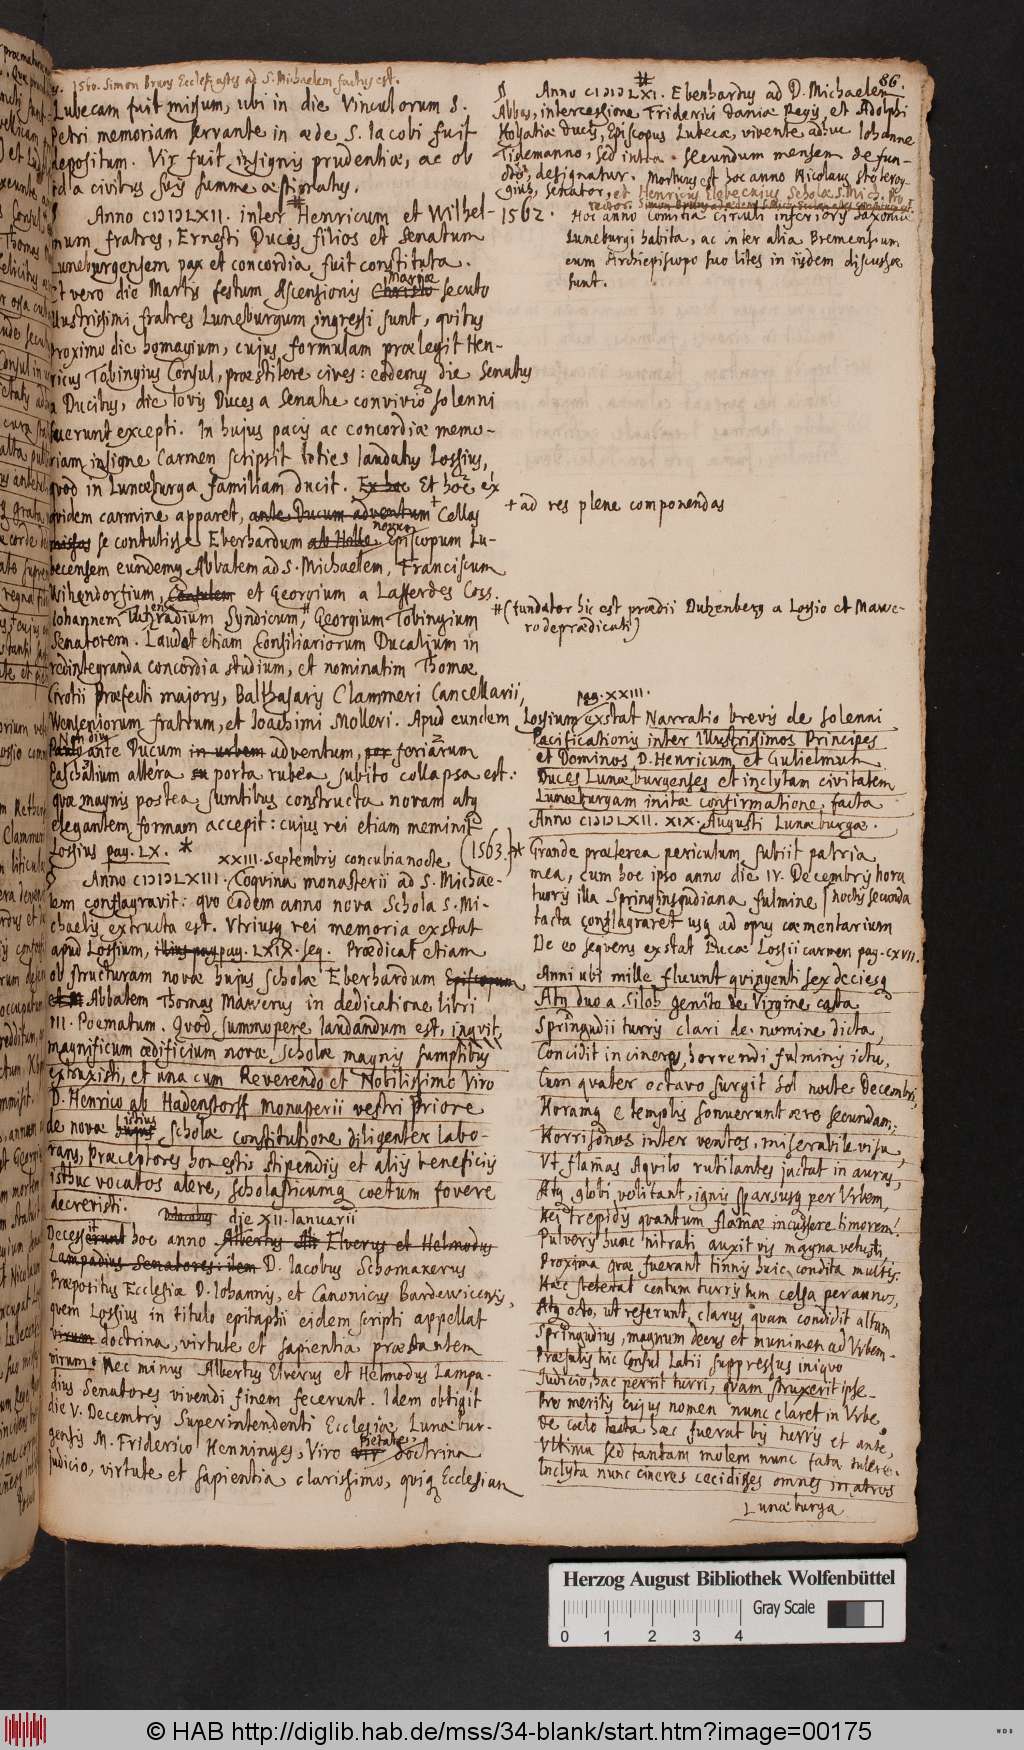 86.
1560. Simon Bruns Ecclesiastes ad S. Michaelem factus est.
Lubecam fuit missum, ubi in die Vinculorum S.
Petri memoriam servante in æde S. Iacobi fuit
depositum. Vir fuit insignis prudentiæ, ac ob
id a civibus suis summe æstimatus.
Anno CIƆIƆLXII. inter Henricum et Wilhel-
mum fratres, Ernesti Ducis filios et Senatum
Luneburgensem pax et concordia fuit constituta.
Et vero die Martis festum Ascensionis Christo Mariæ secuto
Illustrissimi fratres Luneburgum ingressi sunt, quibus
proximo die homagium, cujus formulam prælegit Hen-
ricus Tobingius Consul, præstitere cives: eodemq die Senatus
a Ducibus, die Iovis Duces a Senatu convivio solenni
fuerunt excepti. In hujus pacis ac concordiæ memo-
riam insigne Carmen scripsit toties laudatus Lossius,
quod in Lunæburga familiam ducit. Ex hoc Et hoc ex
quidem carmine apparet, ante Ducum adventum + Cellas
missos se contulisse Eberhardum ab Holle novum Episcopum Lu-
becensem eundemq Abbatem ad S. Michaelem, Franciscum
Witzendorfium, Consulem et Georgium a Lafferdes Coss.
Iohannem Tutzradium Syndicum, # Georgium Tobingium
Senatorem. Laudat etiam Consiliariorum Ducalium in
redintegranda concordia studium, et nominatim Thomæ
Grotii Præfecti majoris, Balthasaris Clammeri Cancellarii,
Wenseniorum fratrum, et Ioachimi Molleri. Apud eundem
Non diu
Paulo ante Ducum in urbem adventum, feriarum
Paschalium altera porta rubea subito collapsa est:
quæ magnis postea sumtibus constructa novam atq
elegantem formam accepit: cujus rei etiam meminit
Lossius pag. LX. *
XXIII. Septembris concubia nocte
Anno CIƆIƆLXIII. Coquina monasterii ad S. Michae-
lem conflagravit: quo eodem anno nova Schola S. Mi-
chaelis extructa est. Utriusq rei memoria exstat
apud Lossium, illius pag pag. LXIX. seq. Prædicat etiam
ob structuram novæ hujus scholæ Eberhardum Episcopum
et Abbatem Thomas Mawerus in dedicatione libri
III. Poematum. Quod summopere laudandum est, inquit,
magnificum ædificium novæ scholæ magnis sumptibus
extruxisti, et una cum Reverendo et Nobilissimo Viro
D. Henrico ab Hadenstorff Monasterii vestri Priore
de novæ hujus istius scholæ constitutione diligenter labo-
rans, præceptores honestis stipendiis et aliis beneficiis
isthuc vocatos alere, scholasticumq coetum fovere
decrevisti.
die XII. Ianuarii
Decesserunt it hoc anno Albertus Elverus et Helmodus
Lampadius Senatores: item D. Iacobus Schomakerus
Præpositus Ecclesiæ D. Iohannis, et Canonicus Bardewicensis,
quem Lossius in titulo epitaphii eidem scripti appellat
virum doctrina, virtute et sapientia præstantem
virum. Nec minus Albertus Elverus et Helmodus Lampa-
dius Senatores vivendi finem fecerunt. Idem obtigit
die V. Decembris Superintendenti Ecclesiæ Lunæbur-
gensis M. Friderico Henninges, Viro vir pietate, doctrina
judicio, virtute et sapientia clarissimo, quiq Ecclesiam
#
Anno CIƆIƆLXI. Eberhardus ad D. Michaelem
Abbas, intercessione Friderici Daniæ Regis, et Adolphi
Holsatiæ Ducis, Episcopus Lubecæ, vivente adhuc Iohanne
Tidemanno, sed intra secundum mensem defun-
cto, designatur. Mortuus est hoc anno Nicolaus Stöterog-
gius, Senator, et Henricus Elebecius Scholæ S. Mich.
1562.
Hoc anno Comitia circuli inferioris Saxoniæ
Luneburgi habita, ac inter alia Bremensium
cum Archiepiscopo suo lites in iisdem discussæ
sunt.
+ ad res plene componendas
# (fundator hic est prædii Dutzenberg a Lossio et Mawe-
ro deprædicati)
pag. XXIII.
Lossium exstat Narratio brevis de solenni
Pacificationis inter Illustrissimos Principes
et Dominos D. Henricum et Gulielmum
Duces Lunæburgenses et inclytam civitatem
Lunæburgam initæ confirmatione facta
Anno CIƆIƆLXII. XIX. Augusti Lunæburgæ.
(1563.) * Grande præterea periculum subiit patria
mea, cum hoc ipso anno die IV. Decembris hora
noctis secunda
turris illa Springinsgudiana fulmine
tacta conflagraret usq ad opus cæmentarium
De eo sequens exstat Lucæ Lossii carmen pag. CXVII.
Anni ubi mille fluunt quingenti sex deciesq
Atq duo a Siloh genito de Virgine casta
Springudii turris clari de nomine dicta,
Concidit in cineres, horrendi fulminis ictu,
Cum quater octavo surgit sol nocte Decembri,
Horamq e templis sonuerunt ære secundam:
Horrisonos inter ventos, miserabile visu,
Ut flamas Aquilo rutilantes jactat in auras,
Atq globi volitant, ignis sparsusq per Urbem,
Hei trepidis quantum flamæ incussere timorem!
Pulveris hunc nitrati auxit vis magna vetusti,
Proxima quæ fuerant turris huic condita multis.
Hæc steterat centum turris tum celsa per annos,
Atq octo, ut referunt, clarus quam condidit altum
Springudius, magnum decus et munimen ad Urbem.
Præsulis hic Consul Latii suppressus iniquo
Iudicio, hac periit turri, quam struxerit ipse.
Pro meritis cujus nomen nunc claret in Urbe
De coelo tacta hæc fuerat bis turris et ante,
Ultima sed tantam molem nunc fata tulere.
Inclyta nunc cineres cecidisse omnes in atros
Lunæburga
Herzog August Bibliothek Wolfenbüttel
Gray Scale
0 1 2 3 4
© HAB http://diglib.hab.de/mss/34-blank/start.htm?image=00175